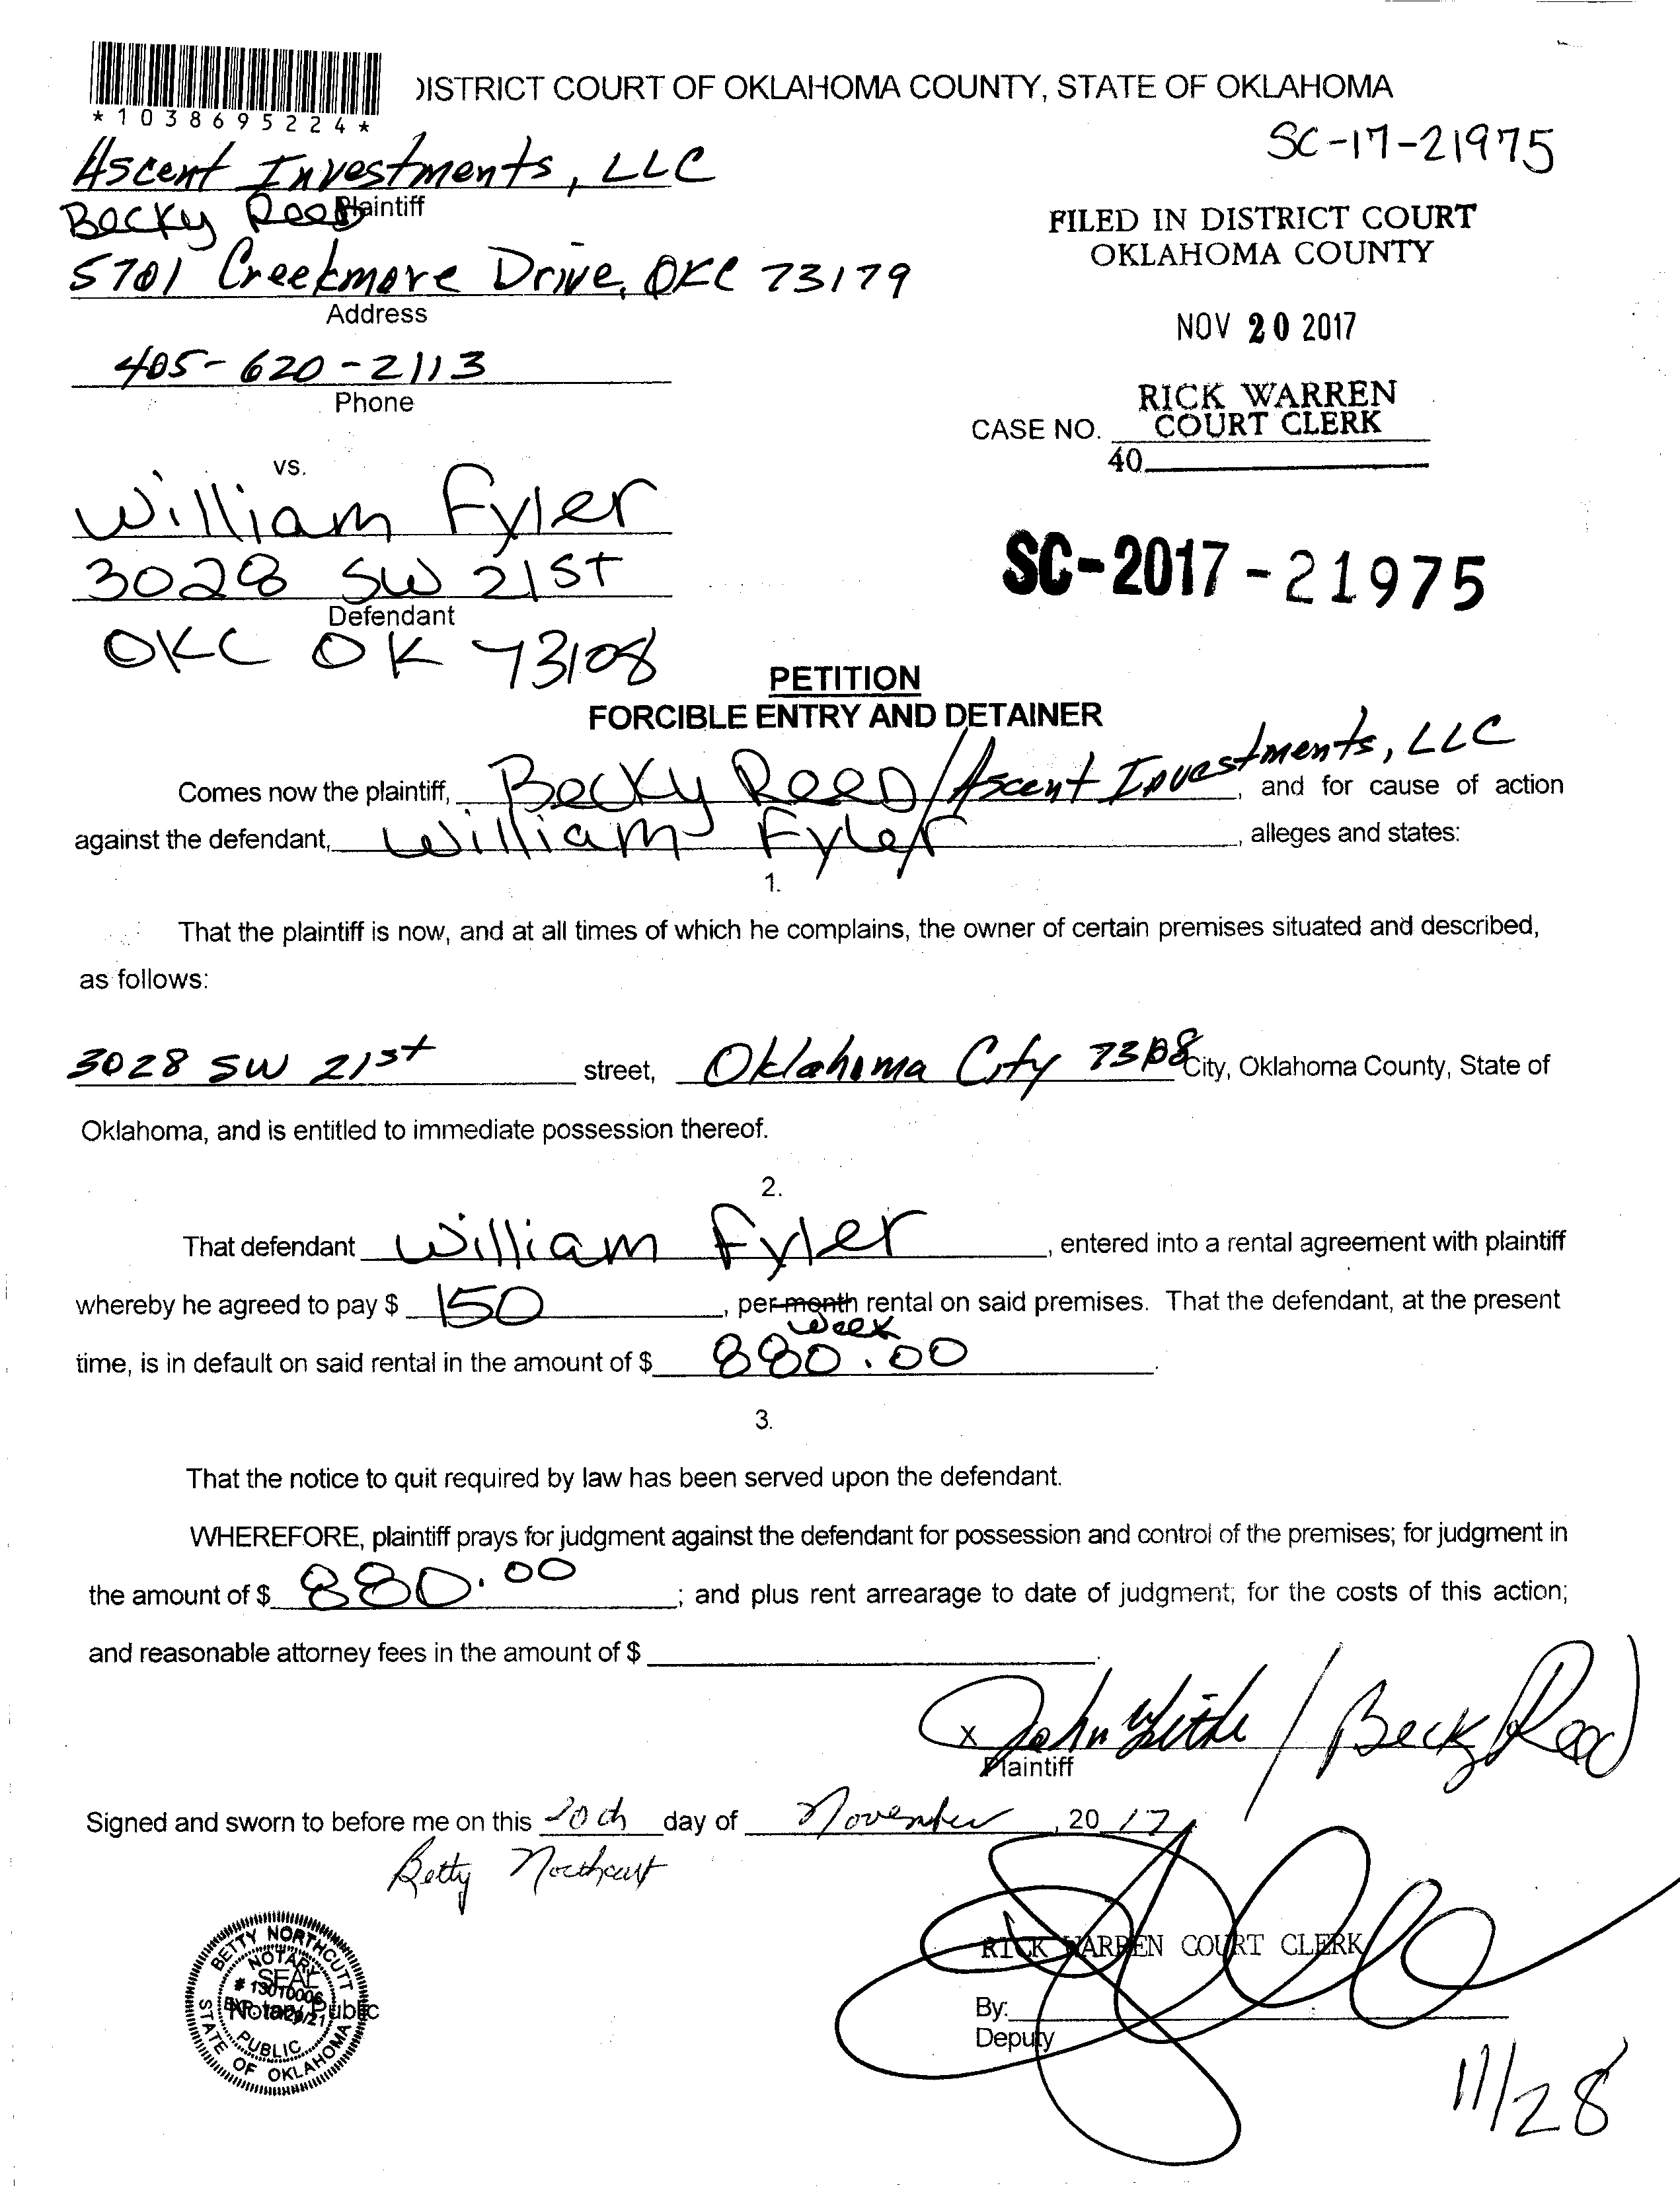 *1038695224*
DISTRICT COURT OF OKLAHOMA COUNTY, STATE OF OKLAHOMA
SC-17-21975
Ascent Investments, LLC
Plaintiff
Becky Reed
5701 Creekmore Drive, OKC 73179
Address
405-620-2113
Phone
FILED IN DISTRICT COURT
OKLAHOMA COUNTY
NOV 20 2017
RICK WARREN
COURT CLERK
CASE NO.
40
vs.
William Fyler
3028 SW 21st
Defendant
OKC OK 73108
SC-2017-21975
PETITION
FORCIBLE ENTRY AND DETAINER
Comes now the plaintiff, Becky Reed/Ascent Investments, LLC, and for cause of action
against the defendant, William Fyler, alleges and states:
1.
That the plaintiff is now, and at all times of which he complains, the owner of certain premises situated and described,
as follows:
3028 SW 21st street, Oklahoma City 73108 City, Oklahoma County, State of
Oklahoma, and is entitled to immediate possession thereof.
2.
That defendant William Fyler, entered into a rental agreement with plaintiff
whereby he agreed to pay $ 150, per month rental on said premises. That the defendant, at the present
week
time, is in default on said rental in the amount of $ 880.00.
3.
That the notice to quit required by law has been served upon the defendant.
WHEREFORE, plaintiff prays for judgment against the defendant for possession and control of the premises; for judgment in
the amount of $ 880.00; and plus rent arrearage to date of judgment; for the costs of this action;
and reasonable attorney fees in the amount of $
x John / Becky Reed
Plaintiff
Signed and sworn to before me on this 20th day of November, 20 17
Betty Northcutt
RICK WARREN COURT CLERK
By:
Deputy
BETTY NORTHCUTT
NOTARY
SEAL
# 13010006
Notary Public
PUBLIC
STATE OF OKLAHOMA
11/28